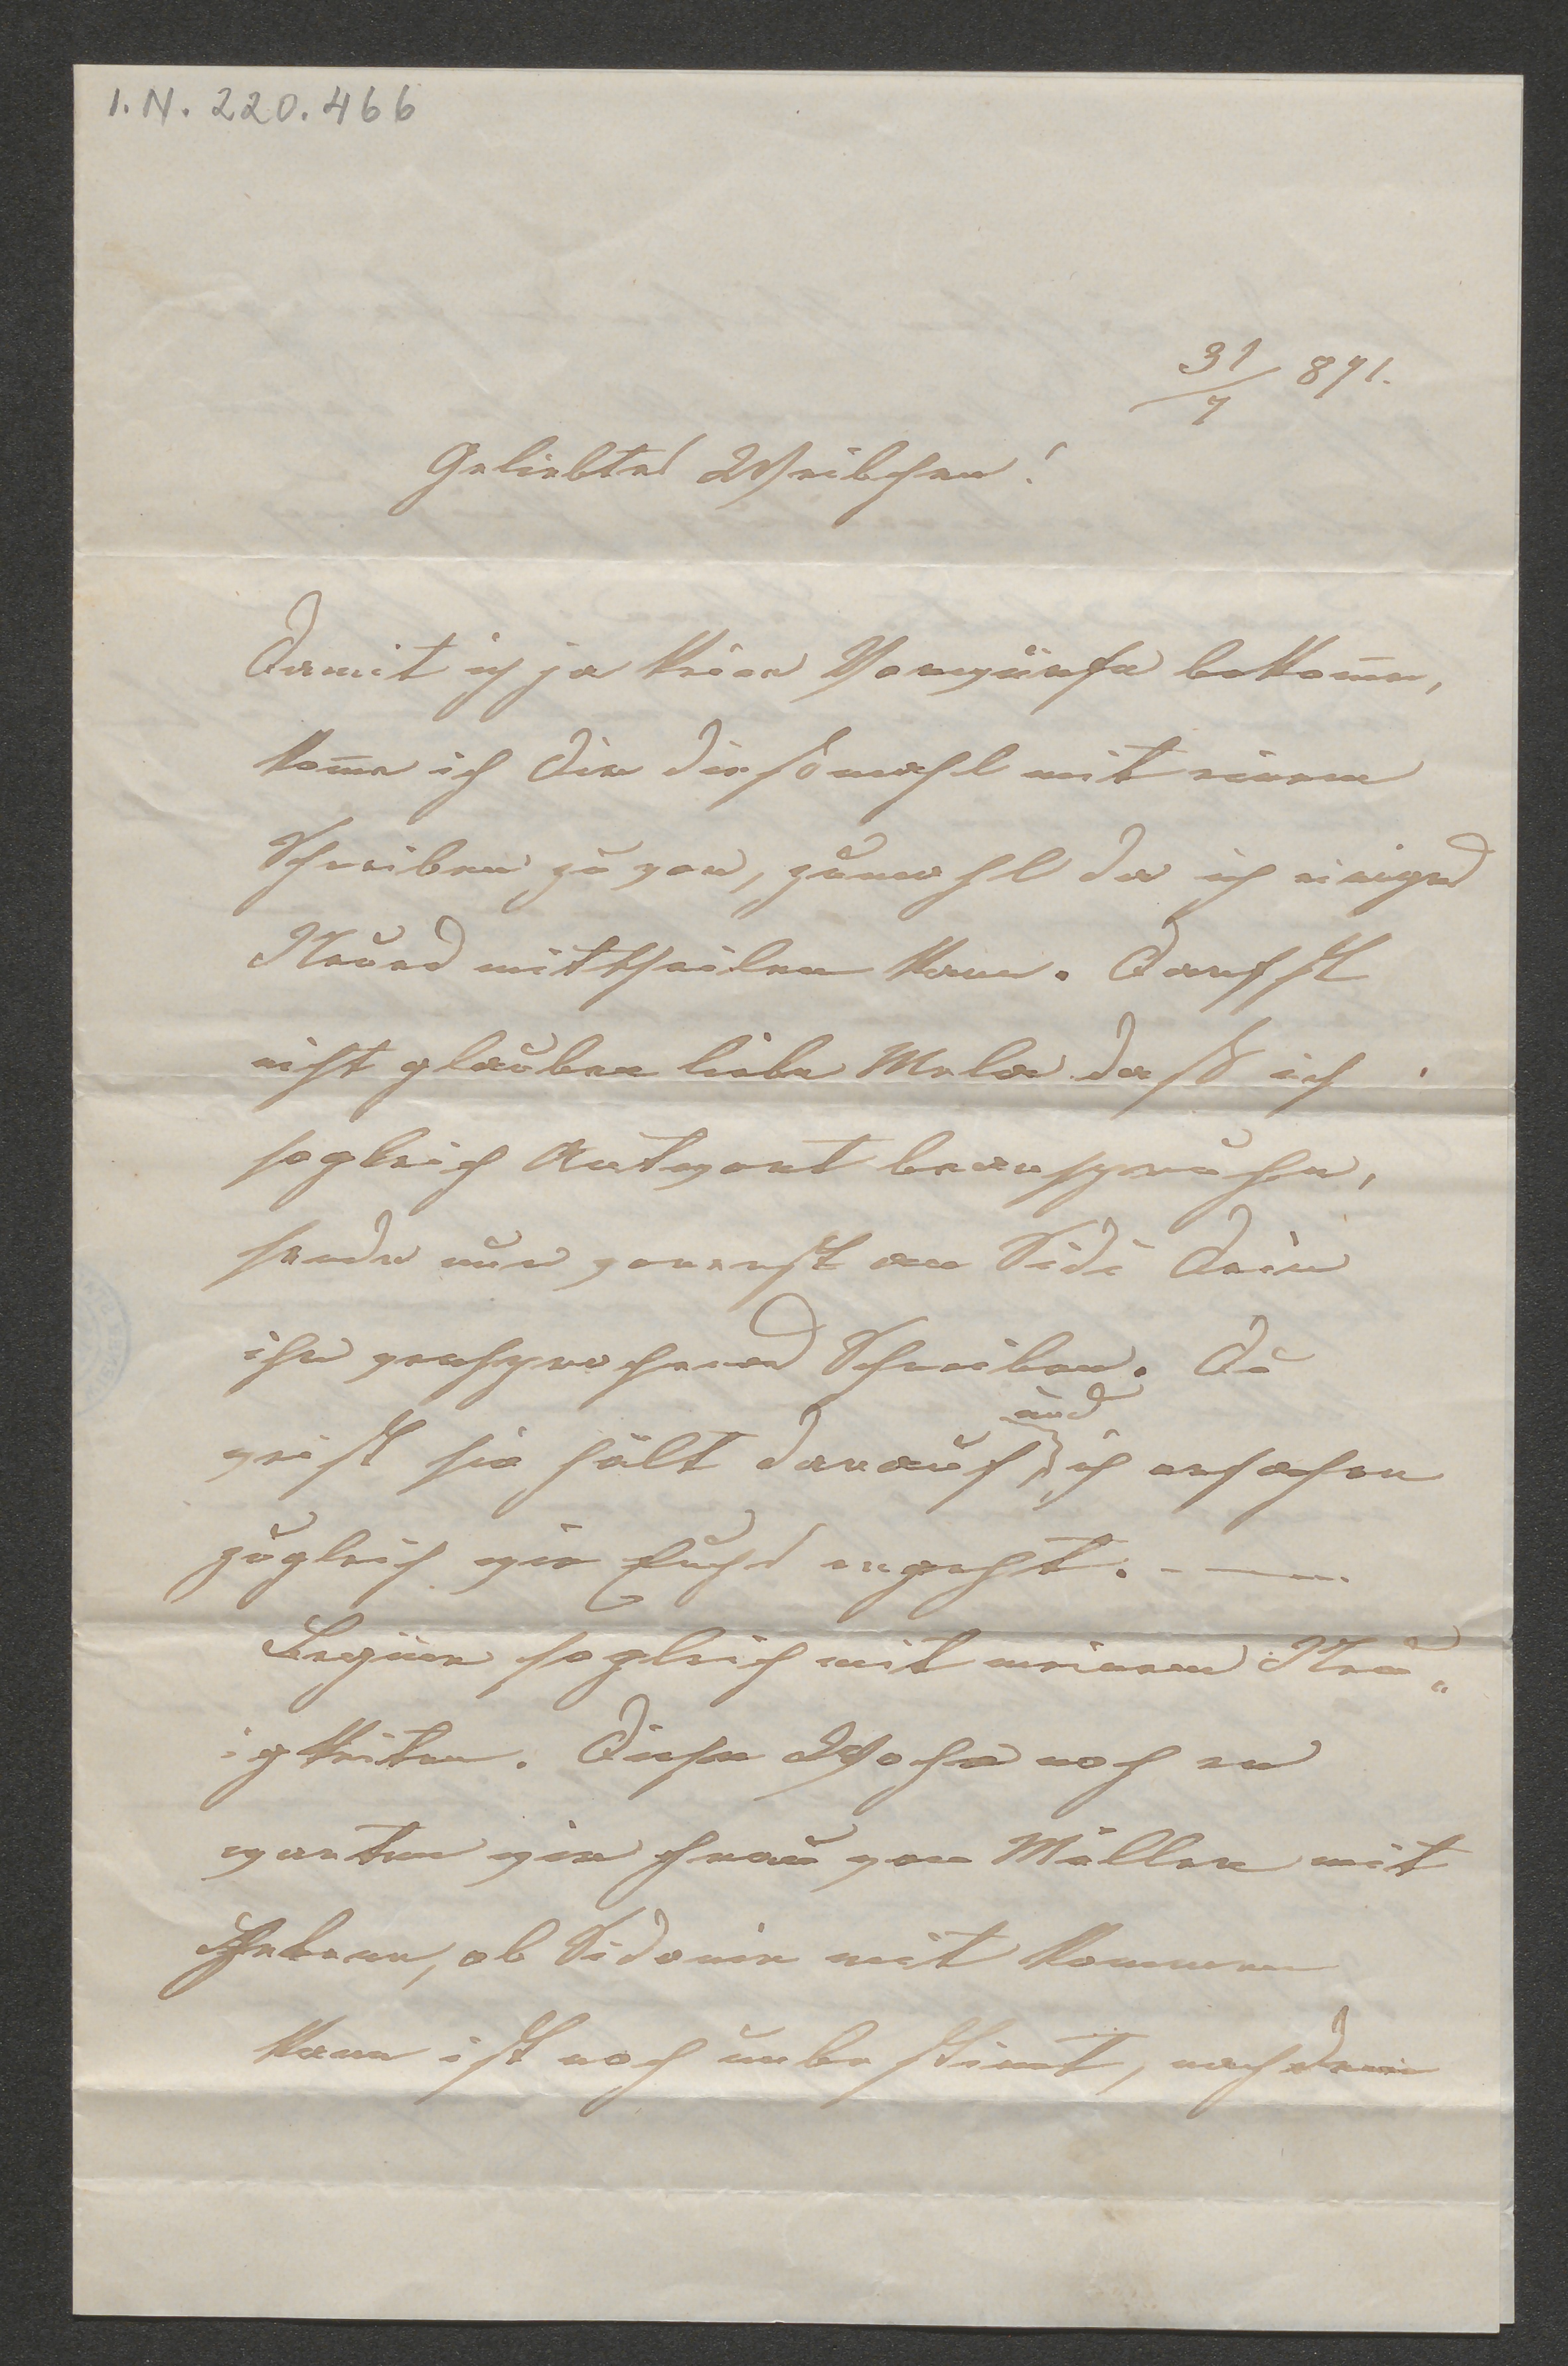 I.N. 220.466
31/7 891.
Geliebtes Weibchen!
Damit ich ja keine Vorwürfe bekom̄e,
kom̄e ich Dir dießmahl mit einem
Schreiben zu vor, zumahl da ich einiges
Neues mittheilen kann. Darfst
nicht glauben liebe Mela daß ich
sogleich Antwort beanspruche,
sende nur vorerst an Sidi Dein
ihr versprochenes Schreiben. Du
weißt sie hält darauf, und ich ersehe
zugleich wie Euchs ergeht. —
Beginne sogleich mit meinen Neu„
igkeiten. Diese Woche noch er
warten wir Frau von Müller mit
ob Sidonie mit kommen
kann ist noch unbestimt, nachdem